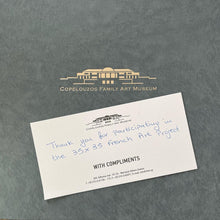 COPELOUZOS FAMILY ART MUSEUM
COPELOUZOS FAMILY ART MUSEUM
Thank you for participating in
the 35x35 French Art Project
WITH COMPLIMENTS